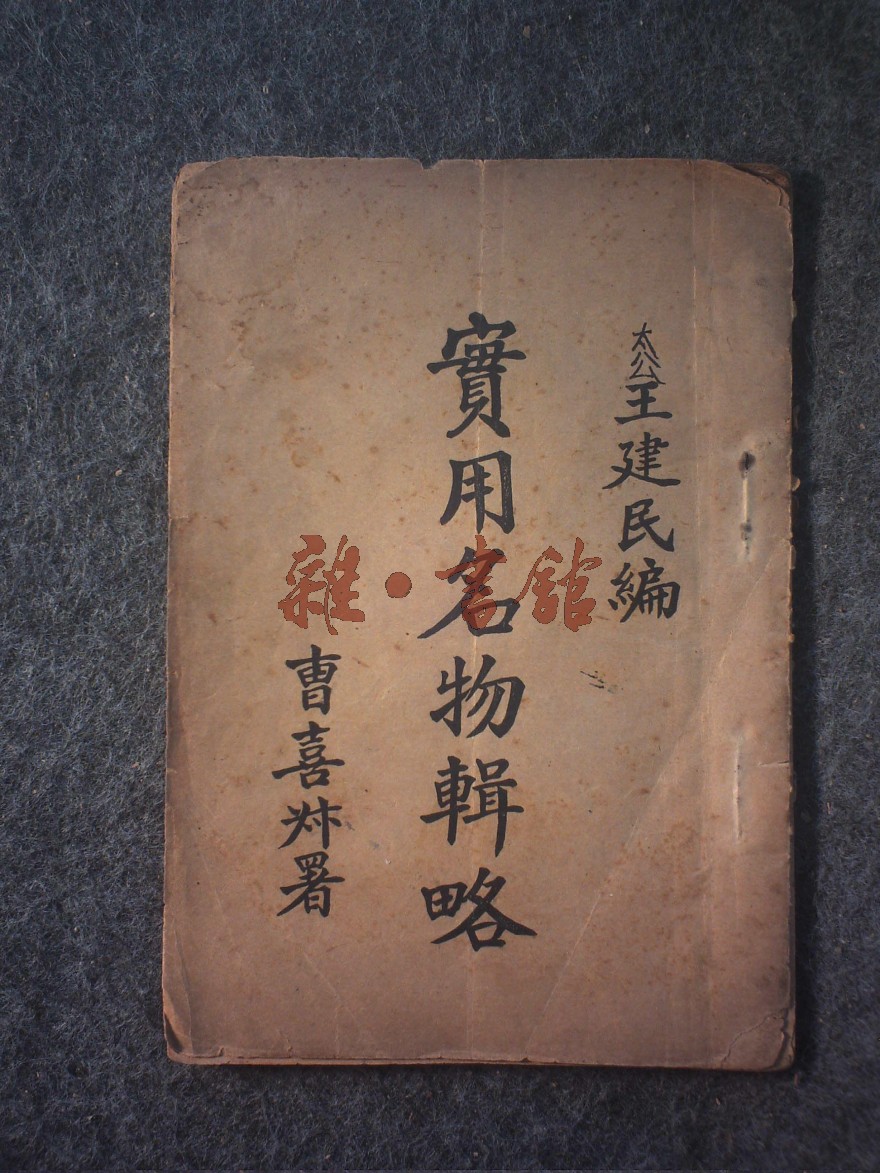 太谷王建民編
實用名物輯略
曹喜署
雜·書館